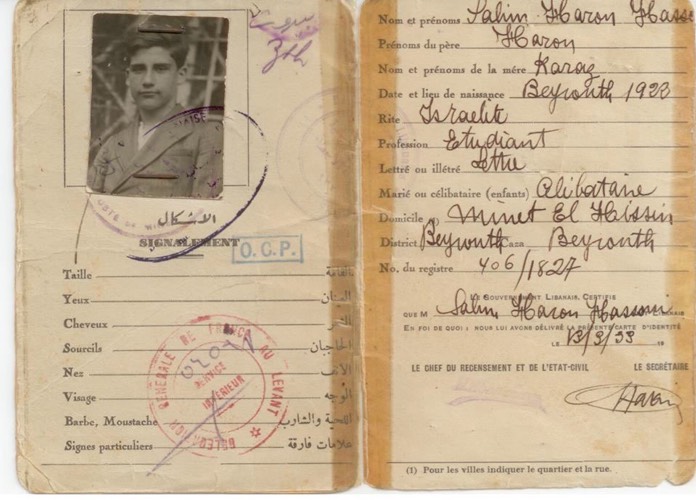 الاشكال
SIGNALEMENT
O.C.P.
Taille القامة
Yeux
Cheveux الشعر
Sourcils الحاجبان
Nez الانف
Visage الوجه
Barbe, Moustache اللحية والشارب
Signes particuliers علامات فارقة
DÉLÉGATION GÉNÉRALE DE FRANCE AU LEVANT
SERVICE
INTÉRIEUR
Nom et prénoms Salim Haron Hasso
Prénoms du père Haron
Nom et prénoms de la mère
Date et lieu de naissance Beyrouth 1923
Rite Israelite
Profession Etudiant
Lettré ou illétré Lettré
Marié ou célibataire (enfants) Célibataire
Domicile (1) Minet El Hissin
District Beyrouth Caza Beyrouth
No. du registre 406/1827
LE GOUVERNEMENT LIBANAIS, CERTIFIE
QUE M Salim Haron Hassoun
EN FOI DE QUOI; NOUS LUI AVONS DÉLIVRÉ LA PRÉSENTE CARTE D'IDENTITÉ
LE
LE CHEF DU RECENSEMENT ET DE L'ETAT-CIVIL LE SECRÉTAIRE
(1) Pour les villes indiquer le quartier et la rue.